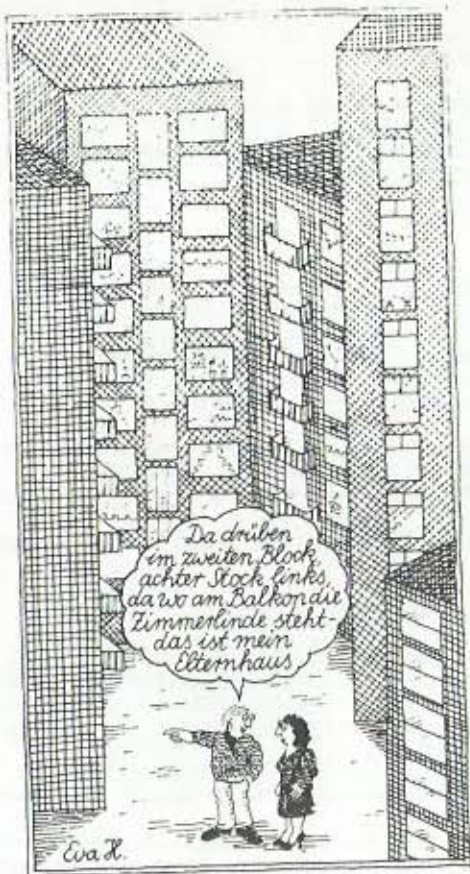 Da drüben
im zweiten Block,
achter Stock links,
da wo am Balkon die
Zimmerlinde steht-
das ist mein
Elternhaus
Eva H.